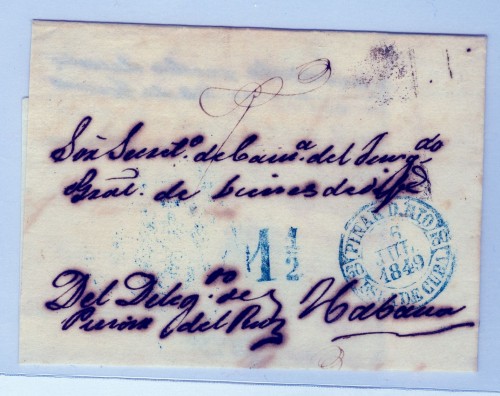 Sōr Secret.º de Cam.ª del Juzg.do
Gral. de bienes de
1½
PINAR D. RIO
6
JUL.
1849
ISLA DE CUBA
Del Deleg.do de
Pinar del Rio
Habana